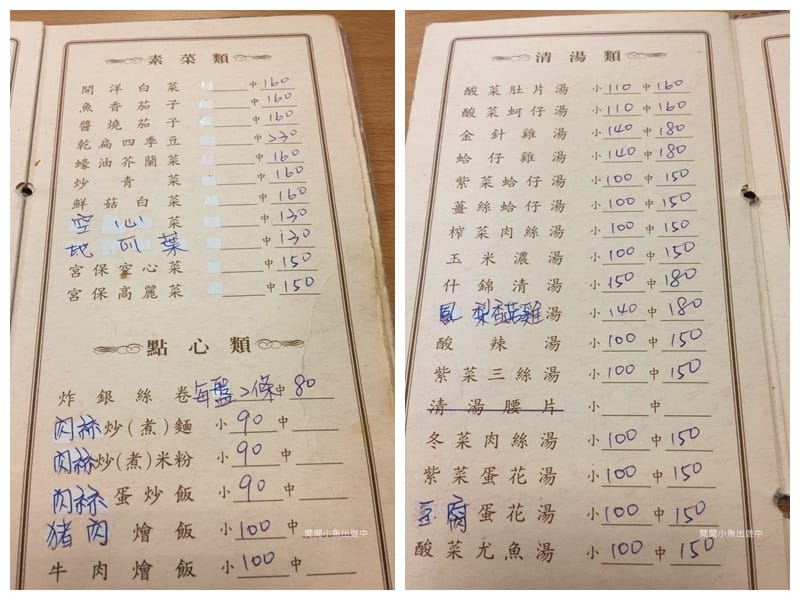 素菜類
開洋白菜 中160
魚香茄子 中160
醬燒茄子 中160
乾扁四季豆 中230
蠔油芥蘭菜 中160
炒青菜 中160
鮮菇白菜 中160
空心菜 中130
地瓜葉 中130
宮保空心菜 中150
宮保高麗菜 中150
點心類
炸銀絲卷 每盤2條 中80
肉絲炒(煮)麵 小90 中
肉絲炒(煮)米粉 小90 中
肉絲蛋炒飯 小90 中
豬肉燴飯 小100 中
牛肉燴飯 小100 中
闆闆小魚出遊中
清湯類
酸菜肚片湯 小110 中160
酸菜蚵仔湯 小110 中160
金針雞湯 小140 中180
蛤仔雞湯 小140 中180
紫菜蛤仔湯 小100 中150
薑絲蛤仔湯 小100 中150
榨菜肉絲湯 小100 中150
玉米濃湯 小100 中150
什錦清湯 小150 中180
鳳梨香菇雞湯 小140 中180
酸辣湯 小100 中150
紫菜三絲湯 小100 中150
清湯腰片 小 中
冬菜肉絲湯 小100 中150
紫菜蛋花湯 小100 中150
豆腐蛋花湯 小100 中150
酸菜尤魚湯 小100 中150
闆闆小魚出遊中